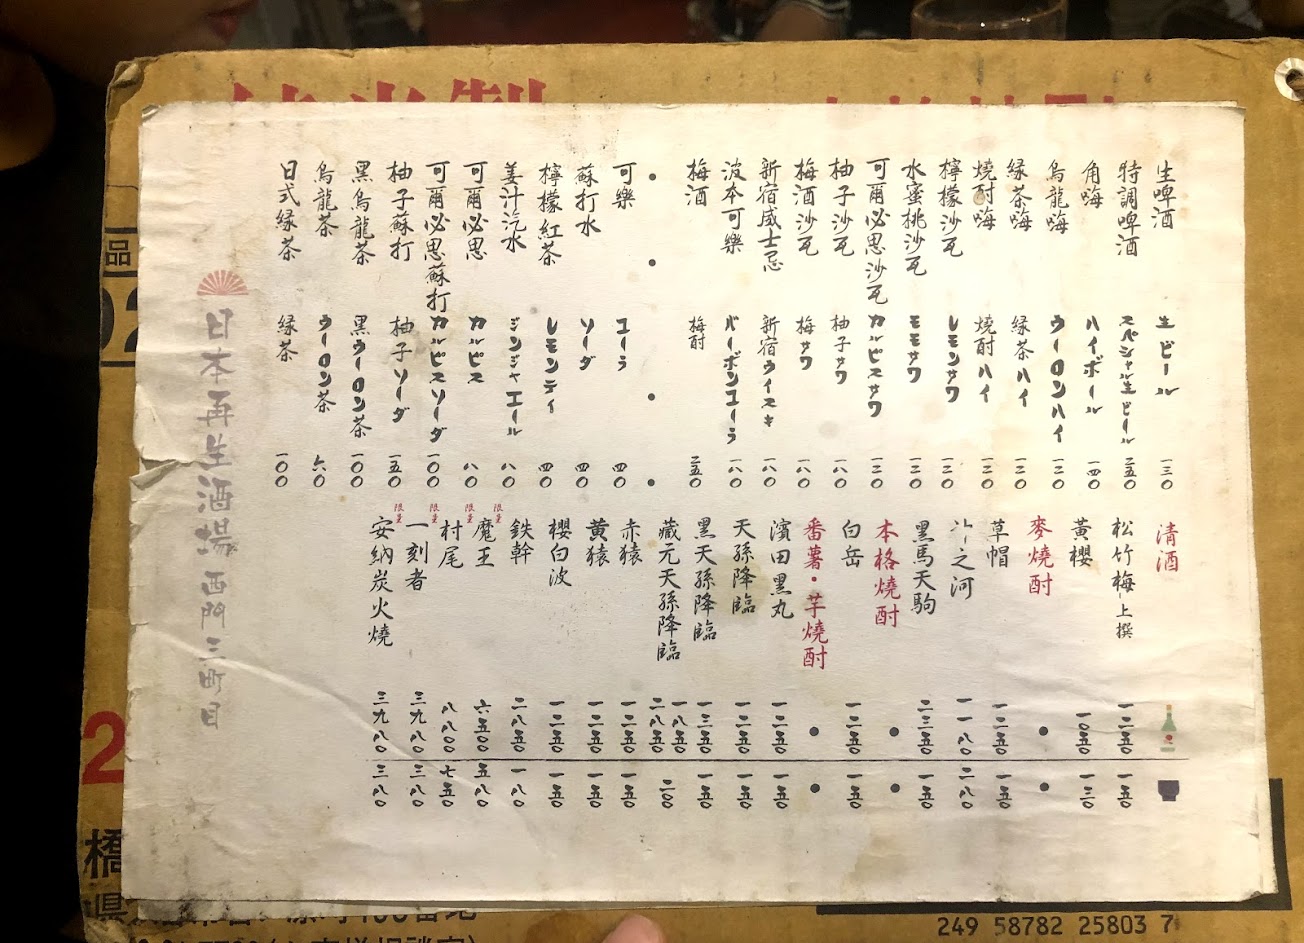 生啤酒 生ビール 一三〇
特調啤酒 スペシャル生ビール 二五〇
角嗨 ハイボール 一四〇
烏龍嗨 ウーロンハイ 一二〇
緑茶嗨 緑茶ハイ 一二〇
燒酎嗨 燒酎ハイ 一二〇
檸檬沙瓦 レモンサワ 一二〇
水蜜桃沙瓦 モモサワ 一二〇
可爾必思沙瓦 カルピスサワ 一二〇
柚子沙瓦 柚子サワ 一八〇
梅酒沙瓦 梅サワ 一八〇
新宿威士忌 新宿ウイスキ 一八〇
波本可樂 バーボンコーラ 一八〇
梅酒 梅酎 二五〇
可樂 コーラ 四〇
蘇打水 ソーダ 四〇
檸檬紅茶 レモンティ 四〇
姜汁汽水 ジンジャエール 八〇
可爾必思 カルピス 八〇
可爾必思蘇打 カルピスソーダ 一〇〇
柚子蘇打 柚子ソーダ 一五〇
黑烏龍茶 黑ウーロン茶 一〇〇
烏龍茶 ウーロン茶 六〇
日式緑茶 緑茶 一〇〇
清酒
松竹梅-上撰 一二五〇 一五〇
黃櫻 一〇五〇 一三〇
麥燒酎
草帽 一二五〇 一五〇
之河 一一八〇 二八〇
黑馬天駒 二三五〇 一五〇
本格燒酎
白岳 一二五〇 一五〇
番薯・芋燒酎
濱田黑丸 一二五〇 一五〇
天孫降臨 一二五〇 一五〇
黑天孫降臨 一三五〇 一五〇
藏元天孫降臨 一八五〇 二八五〇 二〇〇
赤猿 一二五〇 一五〇
黃猿 一二五〇 一五〇
櫻白波 一二五〇 一五〇
鉄幹 二八五〇 一八〇
限量 魔王 六五〇〇 五八〇
限量 村尾 八八〇〇 七五〇
限量 一刻者 三九八〇 三八〇
限量 安納炭火燒 三九八〇 三八〇
日本再生酒場 西門三町目
品
橋
249 58782 25803 7